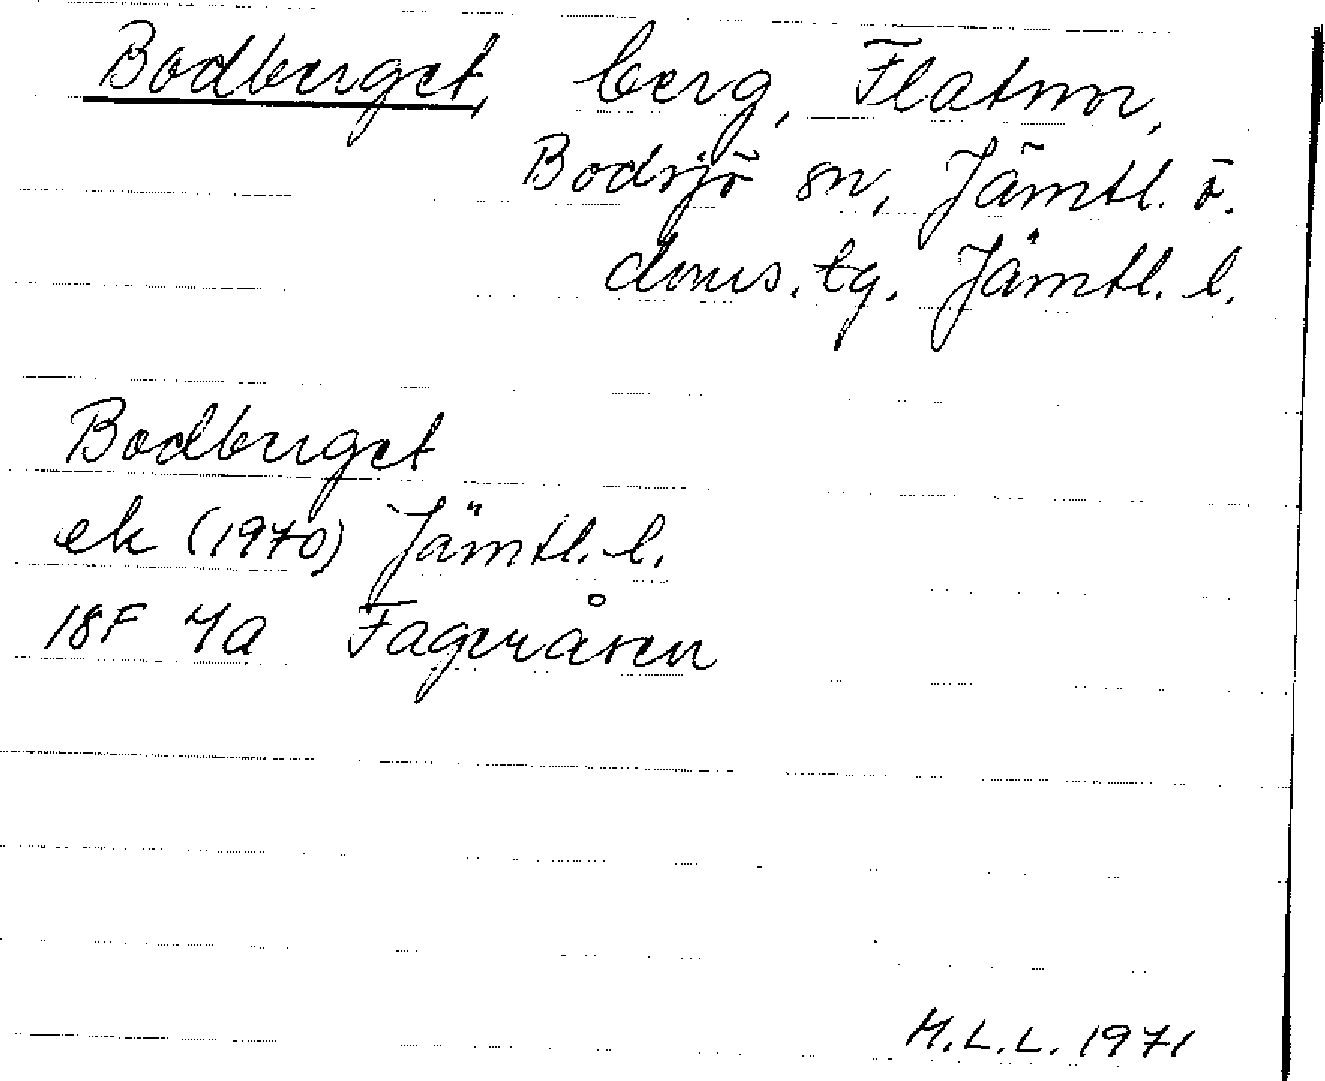 Bodberget, berg, Flatnor,
Bodsjö sn, Jämtl. ö.
doms. tg. Jämtl. l.
Bodberget
ek (1970) Jämtl. l.
18F 7a Fageråsen
M.L.L. 1971